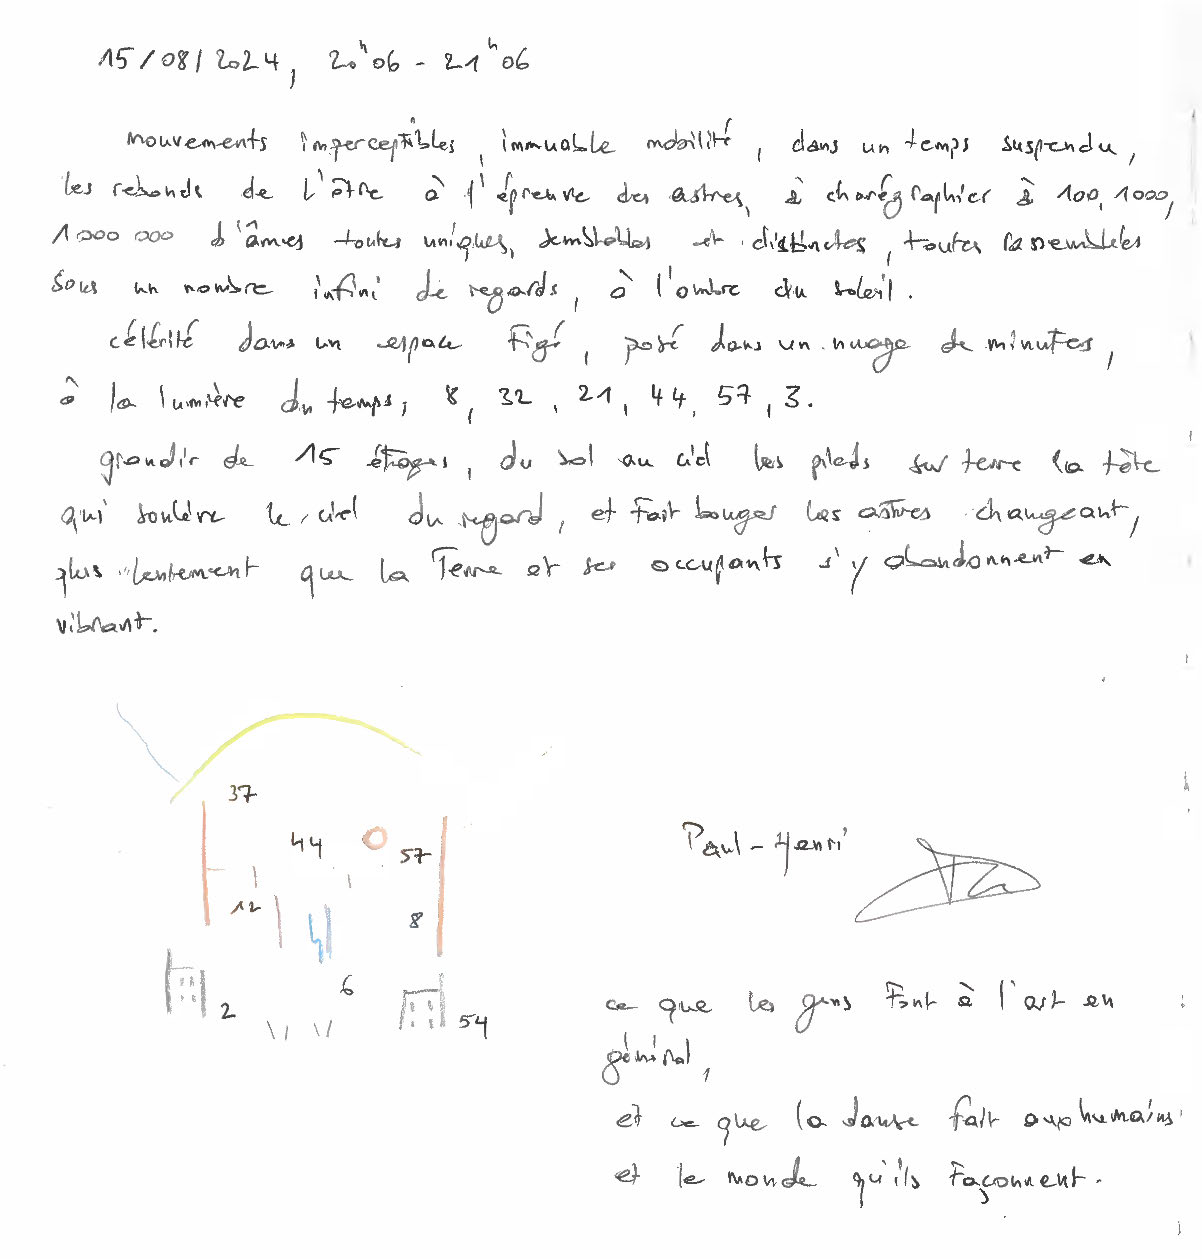 15/08/2024, 20h06 - 21h06
mouvements imperceptibles, immuable mobilité, dans un temps suspendu,
les rebonds de l'être à l'épreuve des astres, à chorégraphier à 100, 1000,
1 000 000 d'âmes toutes uniques, semblables et distinctes, toutes rassemblées
sous un nombre infini de regards, à l'ombre du soleil.
célérité dans un espace figé, posé dans un nuage de minutes,
à la lumière du temps, 8, 32, 21, 44, 57, 3.
grandir de 15 étages, du sol au ciel les pieds sur terre la tête
qui soulève le ciel du regard, et fait bouger les astres changeant,
plus lentement que la Terre et ses occupants s'y abandonnent en
vibrant.
37
44
57
12
8
6
2
54
Paul-Henri
ce que les gens font à l'art en
général,
et ce que la danse fait aux humains
et le monde qu'ils façonnent.